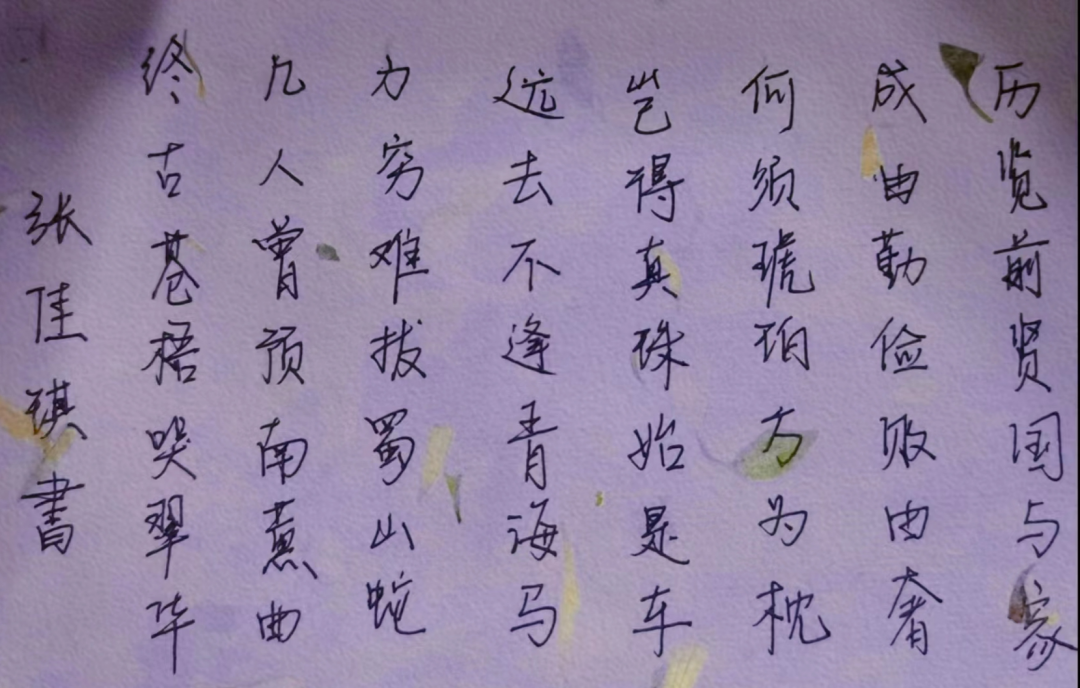 历览前贤国与家
成由勤俭败由奢
何须琥珀方为枕
岂得真珠始是车
远去不逢青海马
力穷难拔蜀山蛇
几人曾预南薰曲
终古苍梧哭翠华
张佳琪書